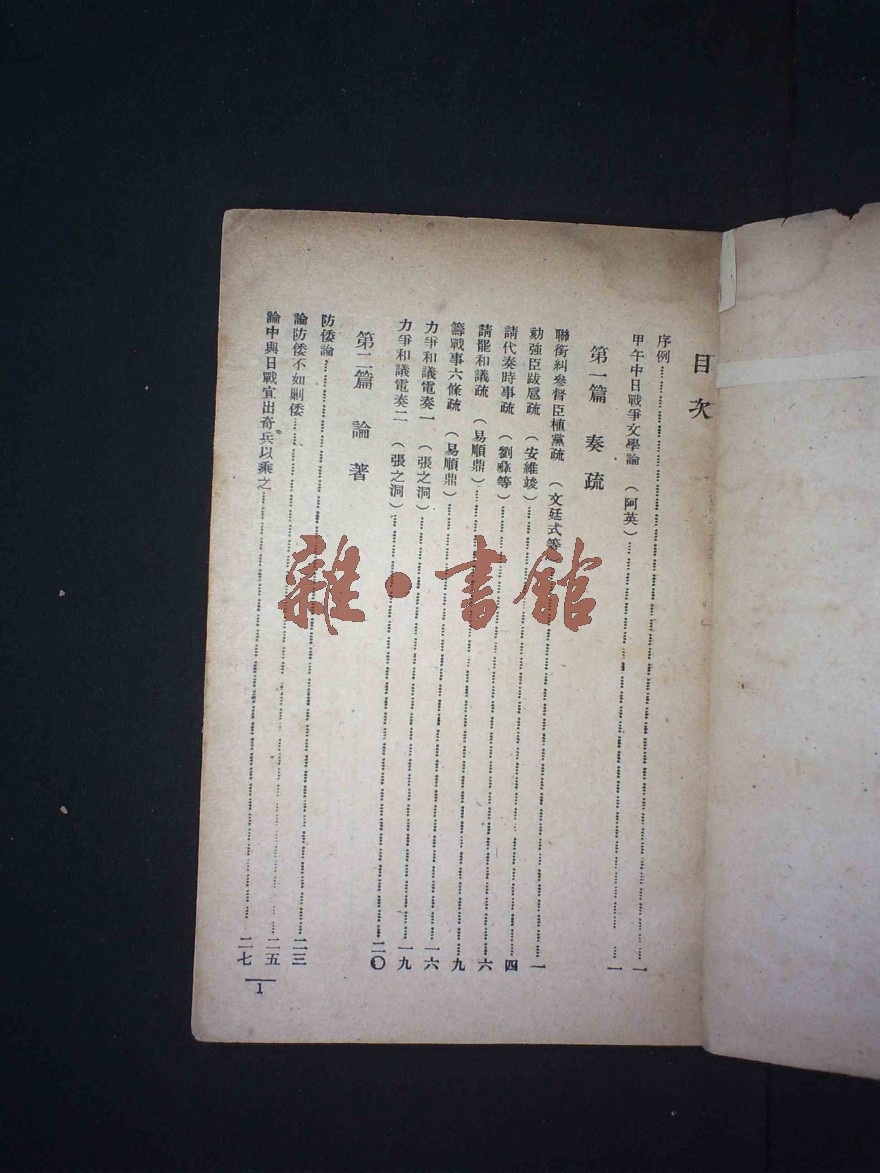 目次
序例……一
甲午中日戰爭文學論（阿英）……一
第一篇 奏疏
聯銜糾參督臣植黨疏（文廷式等……一
劾強臣跋扈疏（安維竣）……四
請代奏時事疏（劉彝等）……六
請罷和議疏（易順鼎）……九
籌戰事六條疏（易順鼎）……一六
力爭和議電奏一（張之洞）……一九
力爭和議電奏二（張之洞）……二〇
第二篇 論著
防倭論……二三
論防倭不如剿倭……二五
論中與日戰宜出奇兵以乘之……二七
1
雜·書館